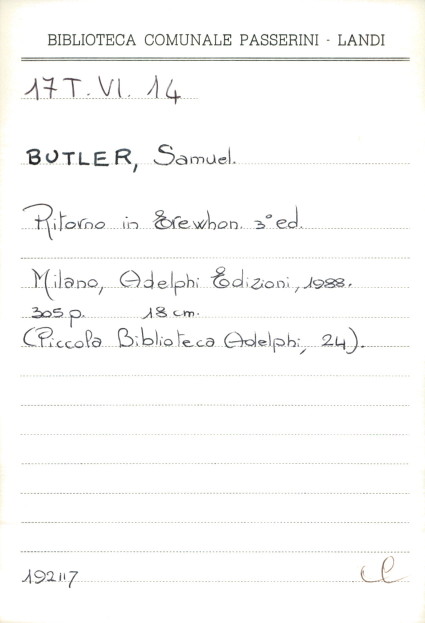 BIBLIOTECA COMUNALE PASSERINI - LANDI
17 T. VI. 14
BUTLER, Samuel.
Ritorno in Erewhon. 3° ed.
Milano, Adelphi Edizioni, 1988.
305 p. 18 cm.
(Piccola Biblioteca Adelphi, 24).
192117